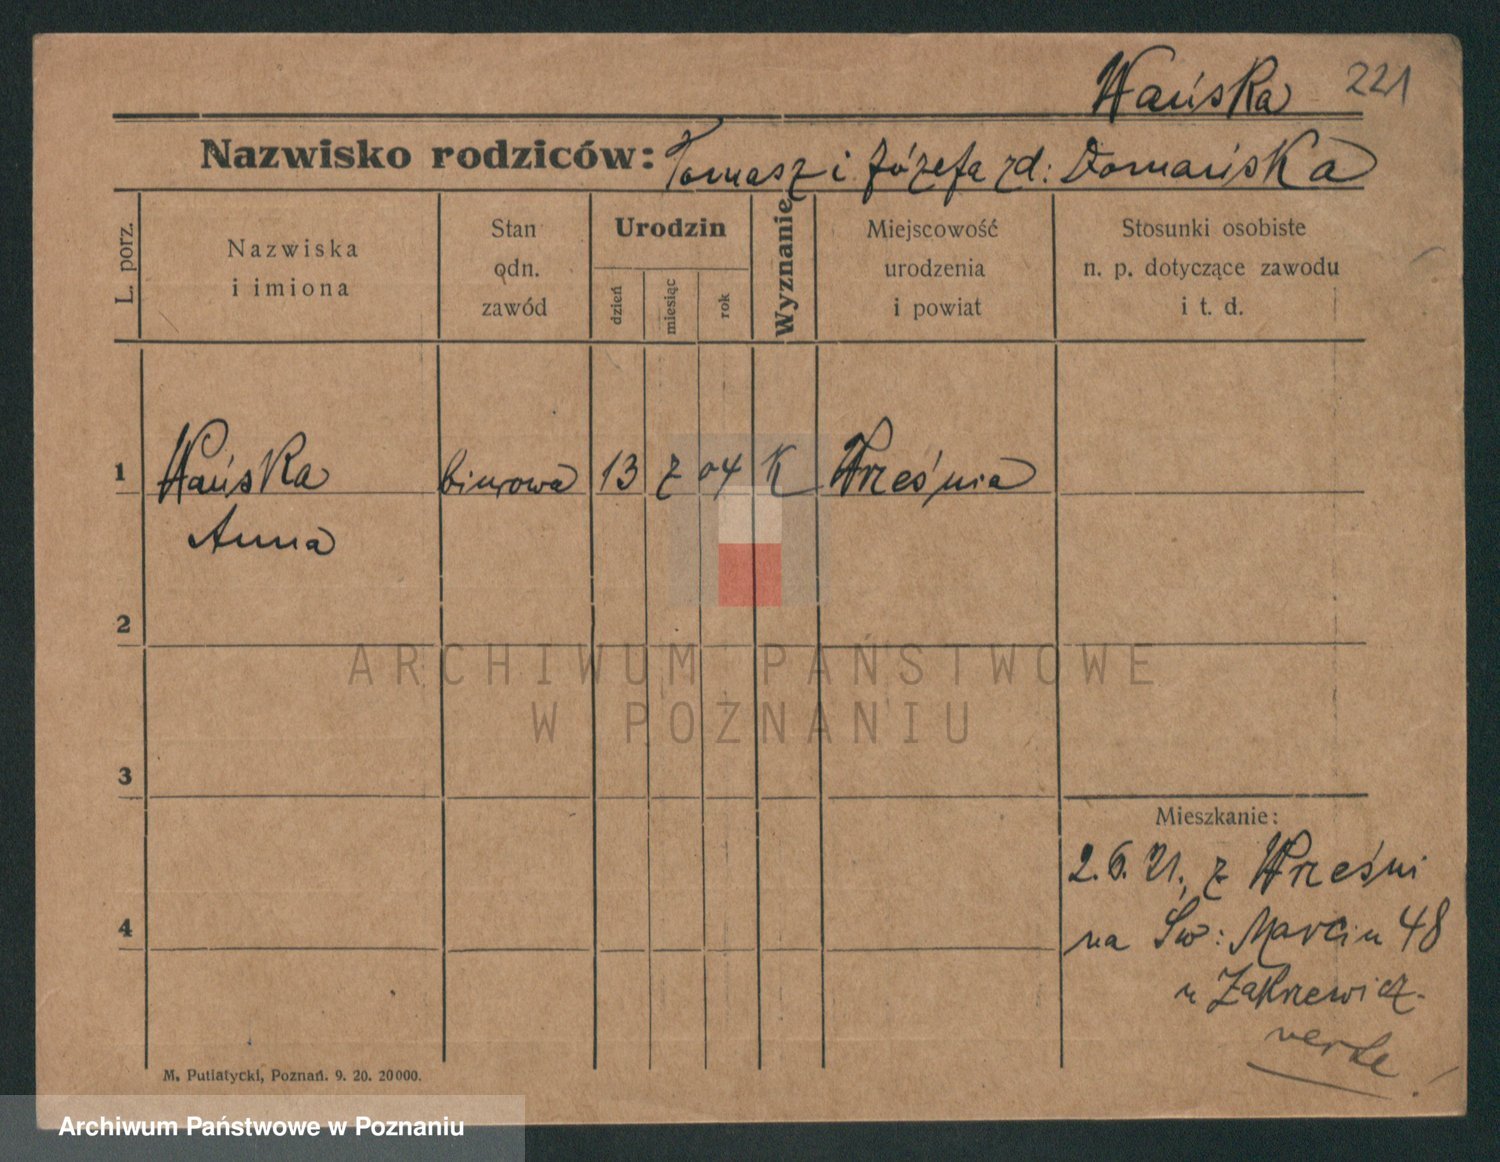 Wańska 221
Nazwisko rodziców: Tomasz i Józefa zd: Domańska
L. porz.
Nazwiska
i imiona
Stan
odn.
zawód
Urodzin
dzień
miesiąc
rok
Wyznanie
Miejscowość
urodzenia
i powiat
Stosunki osobiste
n. p. dotyczące zawodu
i t. d.
1 Wańska biurowa 13 7 04 K Września
Anna
2
ARCHIWUM PAŃSTWOWE
W POZNANIU
3
Mieszkanie:
2.6.21. z Wrześni
4
na Św: Marcin 48
u Zakrzewicz.
M. Putiatycki, Poznań. 9. 20. 20000.
Archiwum Państwowe w Poznaniu